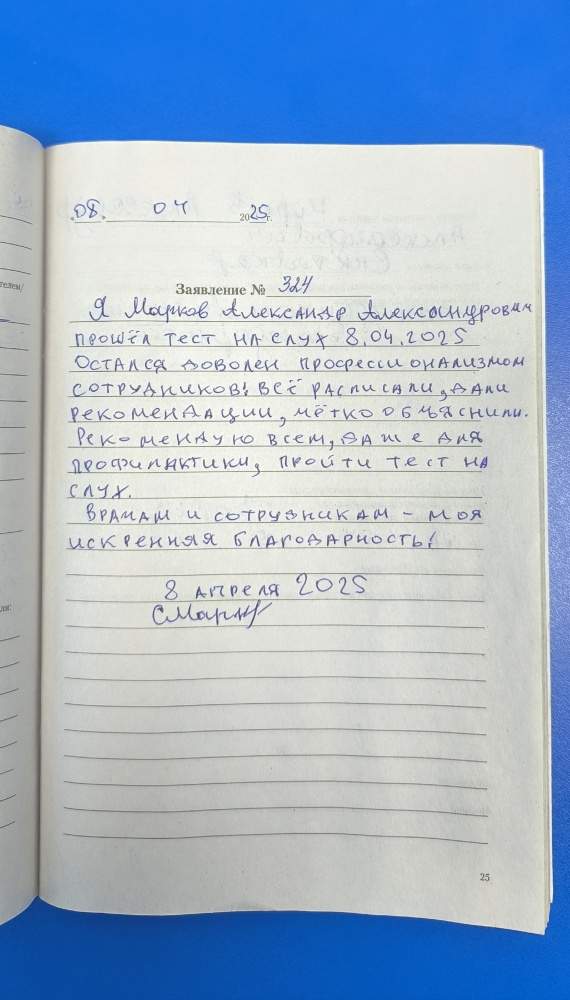 08. 04 2025г.
Заявление № 324
Я Марков Александр Александрович
прошёл тест на слух 8.04.2025
Остался доволен профессионализмом
сотрудников! Всё расписали, дали
рекомендации, чётко объяснили.
Рекомендую всем, даже для
профилактики, пройти тест на
слух.
Врачам и сотрудникам – моя
искренняя благодарность!
8 апреля 2025
25